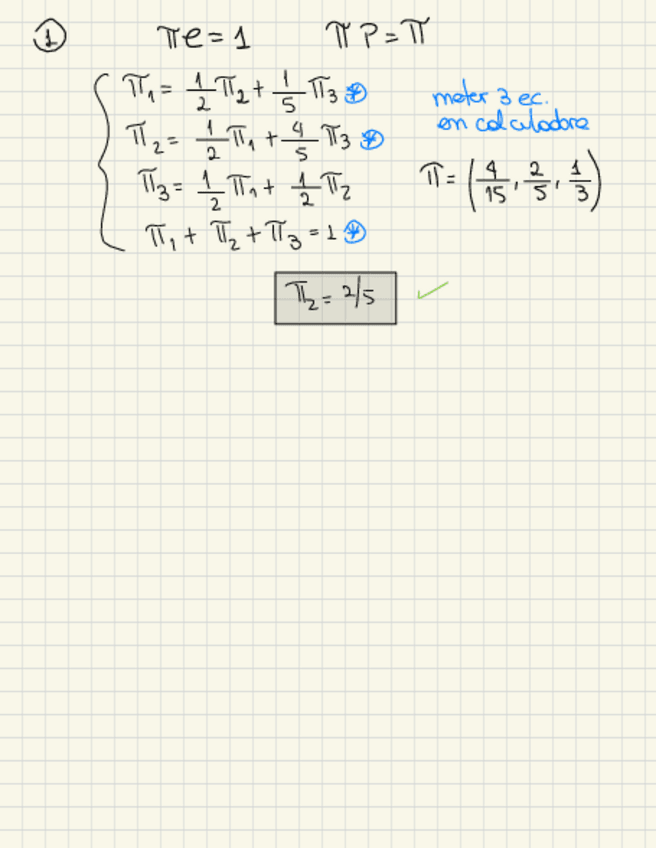 ① πe = 1 πP = π
π₁ = 1/2 π₂ + 1/5 π₃ ⊛
π₂ = 1/2 π₁ + 4/5 π₃ ⊛
π₃ = 1/2 π₁ + 1/2 π₂
π₁ + π₂ + π₃ = 1 ⊛
meter 3 ec.
en calculadora
π = (4/15, 2/5, 1/3)
π₂ = 2/5 ✓